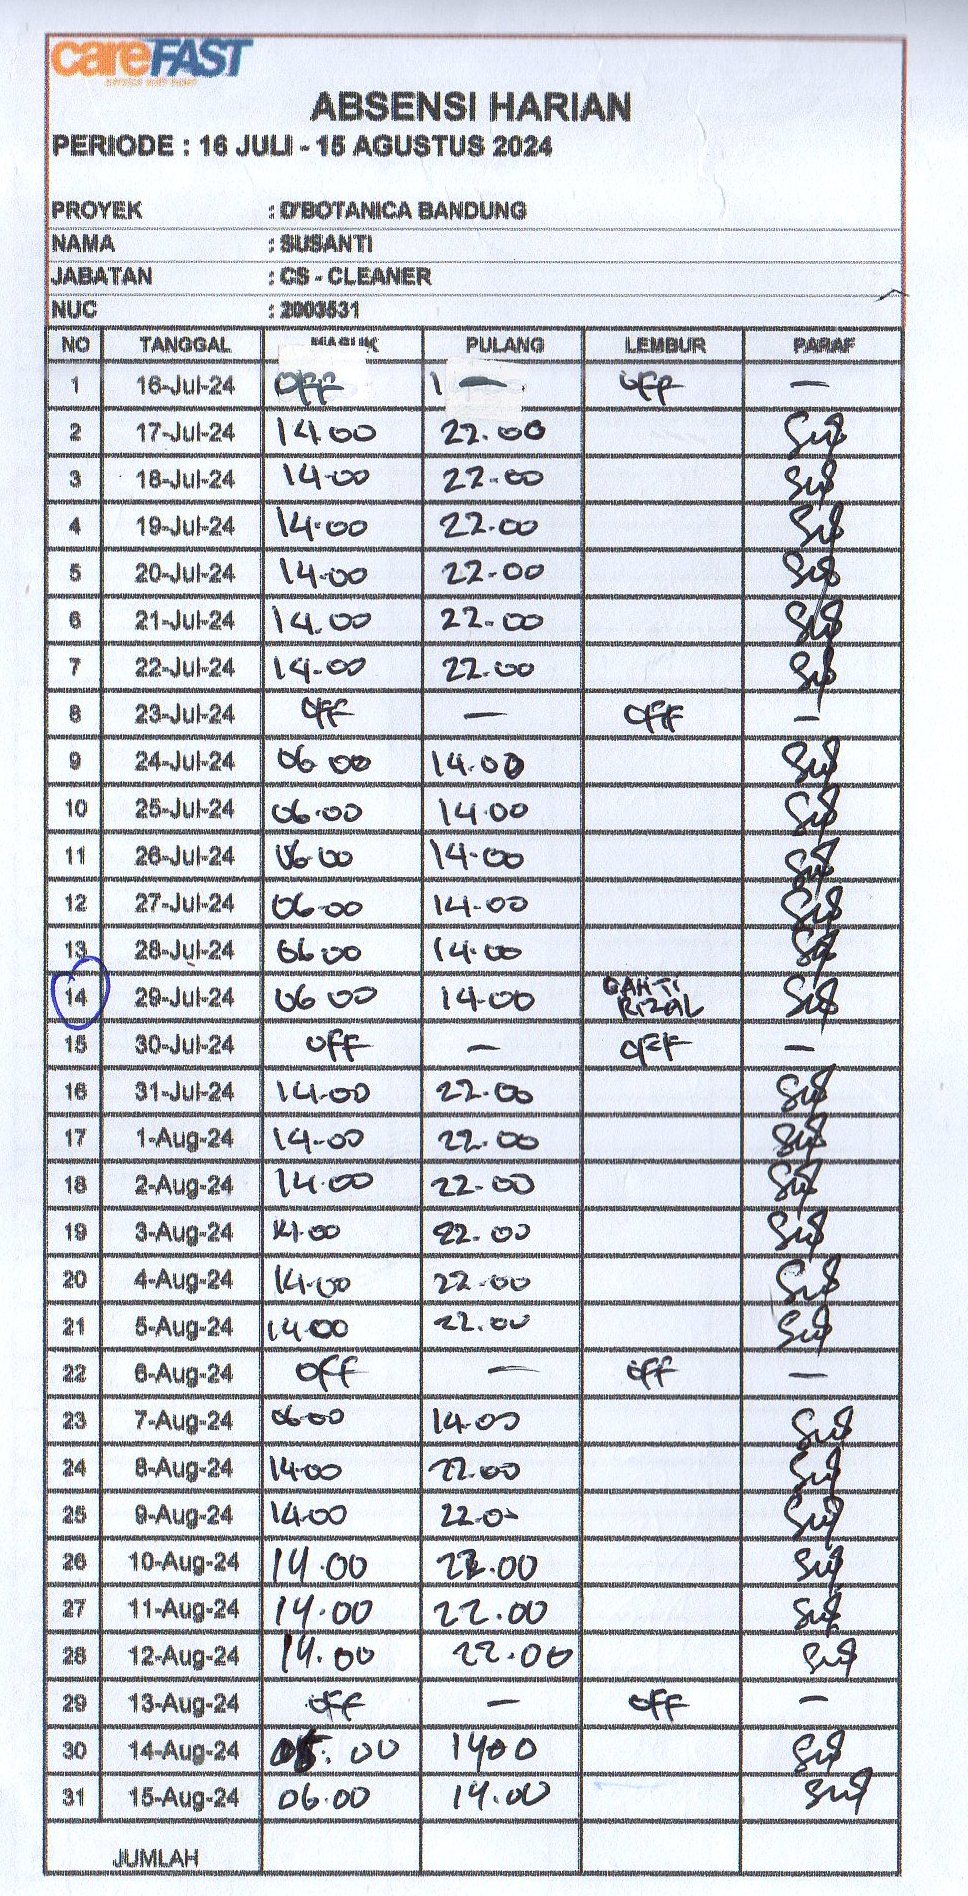 careFAST
ABSENSI HARIAN
PERIODE : 16 JULI - 15 AGUSTUS 2024
PROYEK : D'BOTANICA BANDUNG
NAMA : SUSANTI
JABATAN : CS - CLEANER
NUC : 2003531
NO TANGGAL MASUK PULANG LEMBUR PARAF
1 16-Jul-24 OFF — OFF —
2 17-Jul-24 14.00 22.00 Sus
3 18-Jul-24 14.00 22.00 Sus
4 19-Jul-24 14.00 22.00 Sus
5 20-Jul-24 14.00 22.00 Sus
6 21-Jul-24 14.00 22.00 Sus
7 22-Jul-24 14.00 22.00 Sus
8 23-Jul-24 OFF — OFF —
9 24-Jul-24 06 00 14.00 Sus
10 25-Jul-24 06.00 14.00 Sus
11 26-Jul-24 06.00 14.00 Sus
12 27-Jul-24 06.00 14.00 Sus
13 28-Jul-24 06.00 14.00 Sus
14 29-Jul-24 06 00 14.00 GANTI RIZAL Sus
15 30-Jul-24 OFF — OFF —
16 31-Jul-24 14.00 22.00 Sus
17 1-Aug-24 14.00 22.00 Sus
18 2-Aug-24 14.00 22.00 Sus
19 3-Aug-24 14.00 22.00 Sus
20 4-Aug-24 14.00 22.00 Sus
21 5-Aug-24 14.00 22.00 Sus
22 6-Aug-24 OFF — OFF —
23 7-Aug-24 06.00 14.00 Sus
24 8-Aug-24 14.00 22.00 Sus
25 9-Aug-24 14.00 22.00 Sus
26 10-Aug-24 14.00 22.00 Sus
27 11-Aug-24 14.00 22.00 Sus
28 12-Aug-24 14.00 22.00 Sus
29 13-Aug-24 OFF — OFF —
30 14-Aug-24 06.00 1400 Sus
31 15-Aug-24 06.00 14.00 Sus
JUMLAH